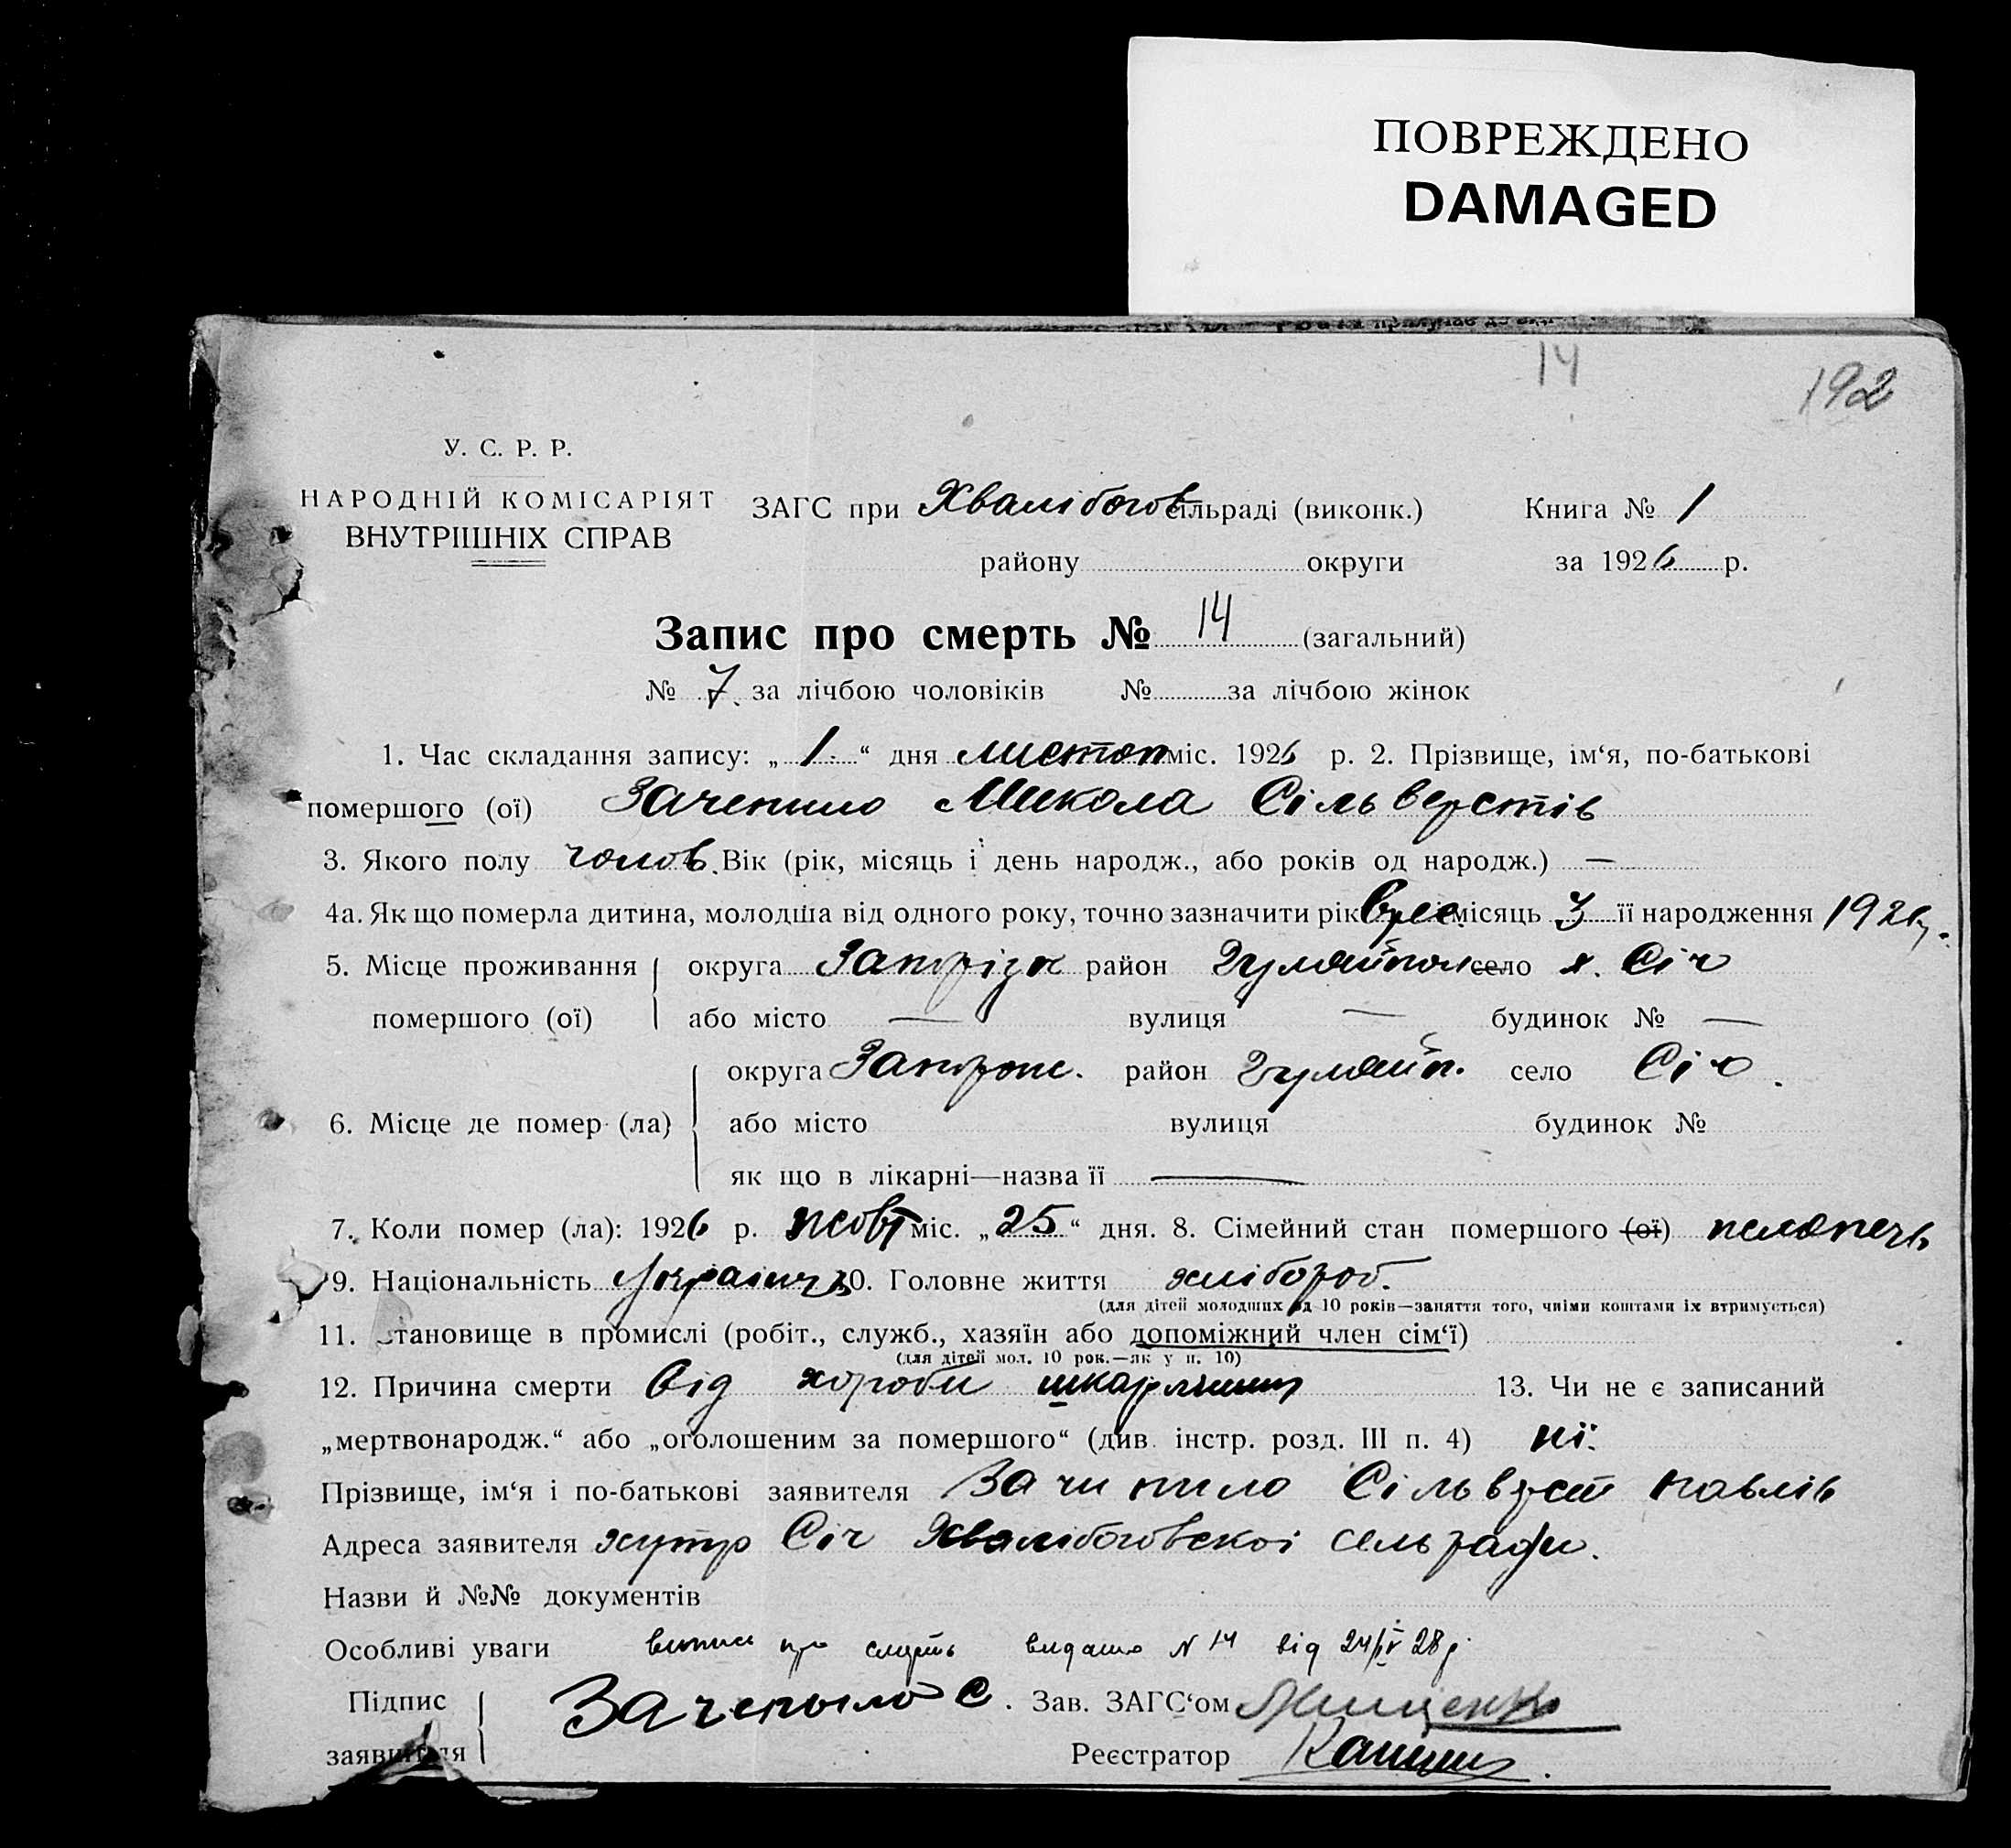 ПОВРЕЖДЕНО
DAMAGED
14
192
У. С. Р. Р.
НАРОДНІЙ КОМІСАРІЯТ
ВНУТРІШНІХ СПРАВ
ЗАГС при Хвалібогов сільраді (виконк.) Книга № 1
району округи за 1926 р.
Запис про смерть № 14 (загальний)
№ 7. за лічбою чоловіків № за лічбою жінок
1. Час складання запису: „ 1 “ дня листоп міс. 1926 р. 2. Прізвище, ім‘я, по-батькові
помершого (ої) Зачепило Микола Сільверстів
3. Якого полу чолов. Вік (рік, місяць і день народж., або років од народж.) —
4а. Як що померла дитина, молодша від одного року, точно зазначити рік місяць 3 її народження 1926 р.
5. Місце проживання округа Запорізк район Гуляйпол село х. Січ
помершого (ої) або місто — вулиця — будинок № —
округа Запорож. район Гуляйп. село Січ.
6. Місце де помер (ла) або місто вулиця будинок №
як що в лікарні—назва її —
7. Коли помер (ла): 1926 р. жовт міс. „ 25 “ дня. 8. Сімейний стан помершого (ої)
9. Національність Українець 10. Головне життя хлібороб.
(для дітей молодших од 10 років—заняття того, чиїми коштами їх втримується)
11. Становище в промислі (робіт., служб., хазяїн або допоміжний член сім‘ї)
(для дітей мол. 10 рок.—як у п. 10)
12. Причина смерти від хороби шкарлатини 13. Чи не є записаний
„мертвонародж.“ або „оголошеним за помершого“ (див. інстр. розд. III п. 4) ні.
Прізвище, ім‘я і по-батькові заявителя Зачипило Сільверст Павлів
Адреса заявителя хутір Січ Хвалібоговскоі сельради.
Назви й №№ документів
Особливі уваги випис про смерть видано N 14 від 24/IV 28 р.
Підпис Зачепыло С. Зав. ЗАГС‘ом
заявителя Реєстратор